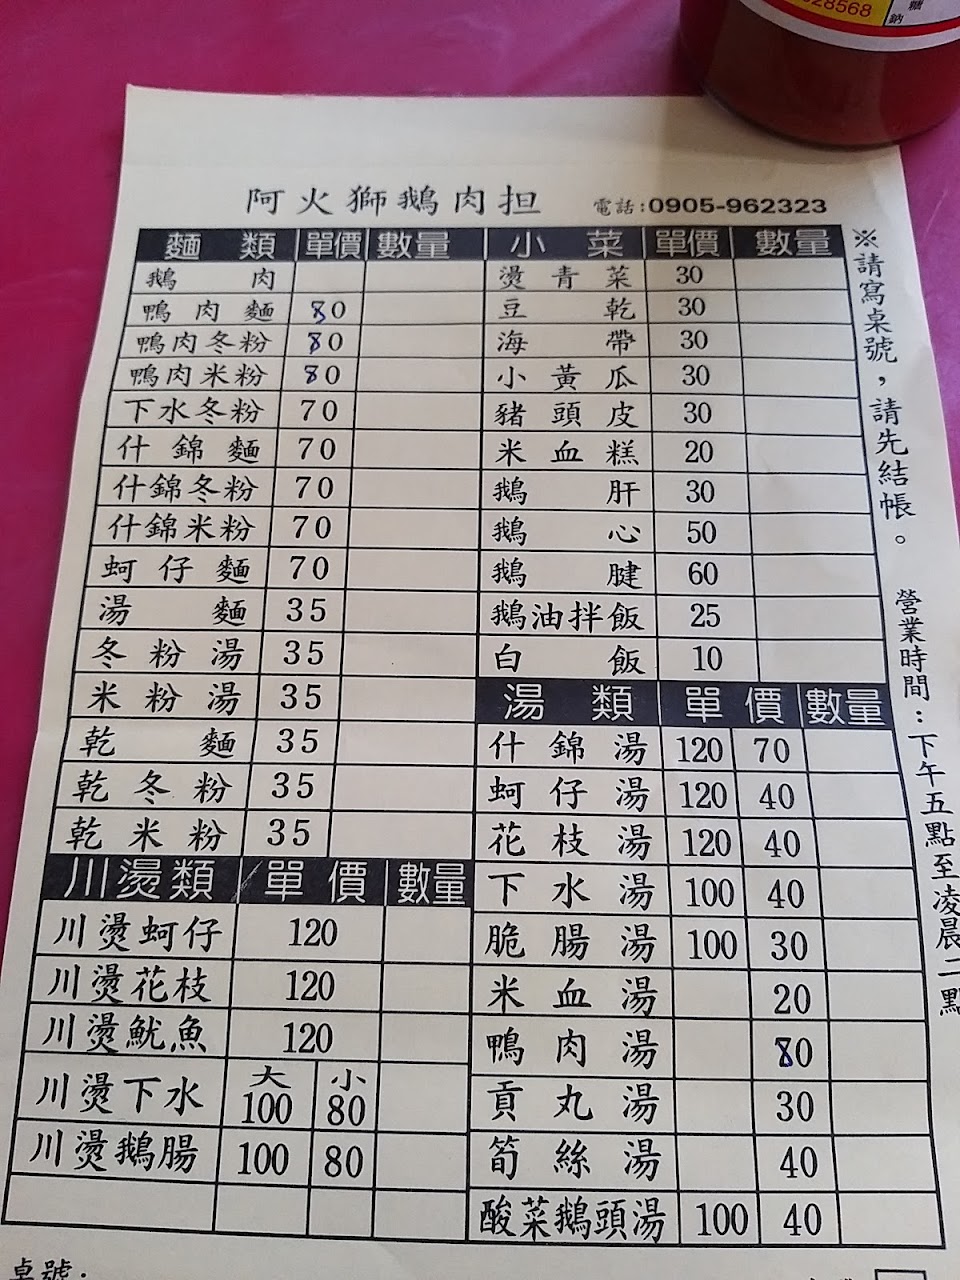 28568
糖
鈉
阿火獅鵝肉担 電話:0905-962323
麵類 單價 數量
鵝肉
鴨肉麵 80
鴨肉冬粉 80
鴨肉米粉 80
下水冬粉 70
什錦麵 70
什錦冬粉 70
什錦米粉 70
蚵仔麵 70
湯麵 35
冬粉湯 35
米粉湯 35
乾麵 35
乾冬粉 35
乾米粉 35
川燙類 單價 數量
川燙蚵仔 120
川燙花枝 120
川燙魷魚 120
大 小
川燙下水 100 80
川燙鵝腸 100 80
小菜 單價 數量
燙青菜 30
豆乾 30
海帶 30
小黃瓜 30
豬頭皮 30
米血糕 20
鵝肝 30
鵝心 50
鵝腱 60
鵝油拌飯 25
白飯 10
湯類 單價 數量
什錦湯 120 70
蚵仔湯 120 40
花枝湯 120 40
下水湯 100 40
脆腸湯 100 30
米血湯 20
鴨肉湯 80
貢丸湯 30
筍絲湯 40
酸菜鵝頭湯 100 40
※請寫桌號，請先結帳。 營業時間:下午五點至凌晨二點
桌號: